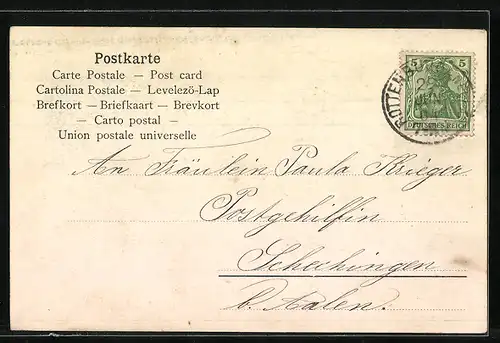 Postkarte
Carte Postale — Post card
Cartolina Postale — Levelezö-Lap
Brefkort — Briefkaart — Brevkort
— Carto postal —
Union postale universelle
5 5
DEUTSCHES REICH
An Fräulein Paula Krieger
Postgehilfin
Schechingen
b. Aalen.